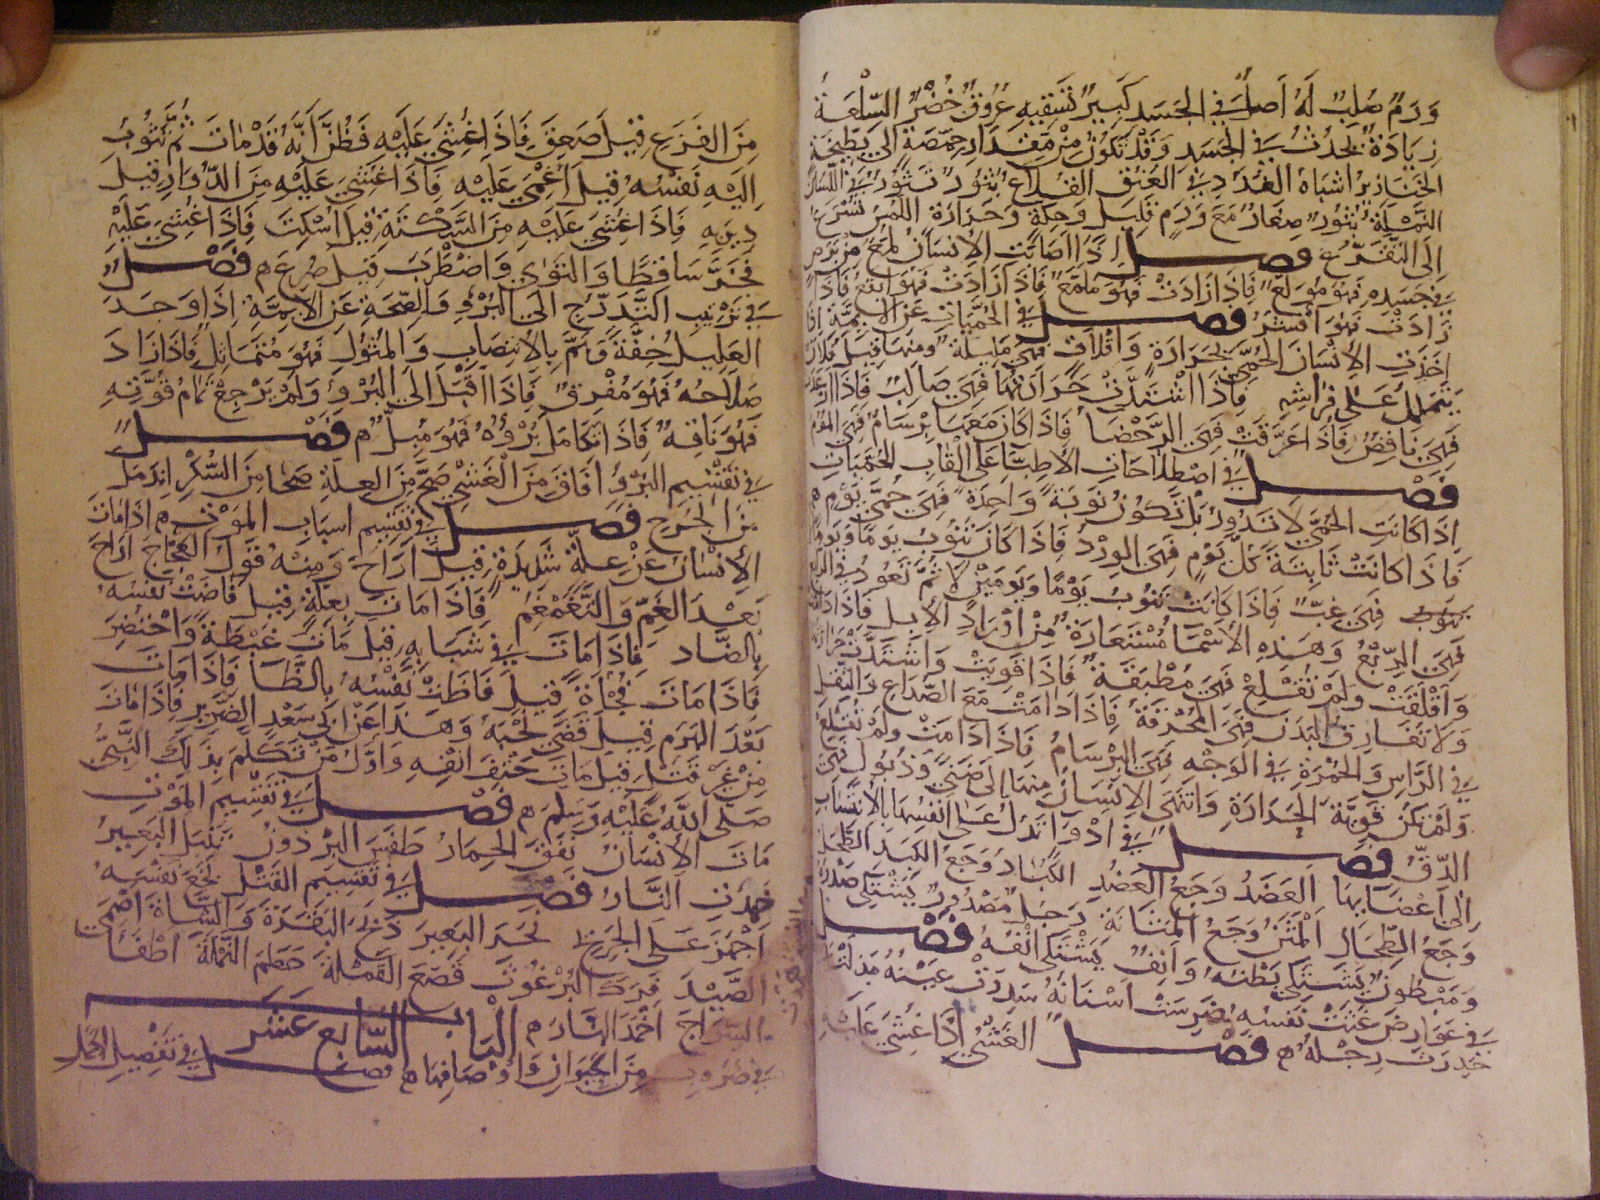 وَرَمٌ صُلِبٌ لَهُ أَصلٌ فِي الجَسَدِ كَبِيرٌ تَسْقِيهِ عُرُوقٌ خُضْرٌ السِّلْعَةُ
زِيَادَةٌ تَحْدُثُ فِي الجَسَدِ وَقَدْ تَكُونُ مِنْ مِقْدَارِ حِمَّصَةٍ اِلَى بِطِّيخَةٍ
الخَنَازِيرُ اَشْبَاهُ الغُدَدِ فِي العُنُقِ القُلَاعُ بُثُورٌ فِي اللِّسَانِ
النَّمْلَةُ بُثُورٌ صِغَارٌ مَعَ وَرَمٍ قَلِيلٍ وَحِكَّةٍ وَحَرَارَةِ اللَّمْسِ تُسْرِعُ
اِلَى التَّقَرُّحِ فصل اِذَا اَصَابَتِ الاِنْسَانَ لُمَعٌ مِنْ بَرَصٍ
فِي جَسَدِهِ فَهُوَ مُوَلَّعٌ فَاِذَا زَادَتْ فَهُوَ مُلَمَّعٌ فَاِذَا زَادَتْ فَهُوَ اَبْقَعُ فَاِذَا
زَادَتْ فَهُوَ اَقْشَرُ فصل فِي الحُمَّيَاتِ عَنِ الاَئِمَّةِ اِذَا
اَخَذَتِ الاِنْسَانَ الحُمَّى بِحَرَارَةٍ وَاِقْلَاقٍ فَهِيَ مَلِيلَةٌ وَمِنْهَا قِيلَ فُلَانٌ
يَتَمَلْمَلُ عَلَى فِرَاشِهِ فَاِذَا اشْتَدَّتْ حَرَارَتُهَا فَهِيَ صَالِبٌ فَاِذَا
فَهِيَ نَافِضٌ فَاِذَا عَرَّقَتْ فَهِيَ الرُّحَضَاءُ فَاِذَا كَانَ مَعَهَا بِرْسَامٌ فَهِيَ المُومُ
فصل فِي اصْطِلَاحَاتِ الاَطِبَّاءِ عَلَى اَلْقَابِ الحُمَّيَاتِ
اِذَا كَانَتِ الحُمَّى لَا تَدُورُ بَلْ تَكُونُ نَوْبَةً وَاحِدَةً فَهِيَ حُمَّى يَوْمٍ
فَاِذَا كَانَتْ نَائِبَةً كُلَّ يَوْمٍ فَهِيَ الوِرْدُ فَاِذَا كَانَتْ تَنُوبُ يَوْمًا وَيَوْمًا
فَهِيَ غِبٌّ فَاِذَا كَانَتْ تَنُوبُ يَوْمًا وَيَوْمَيْنِ لَا ثُمَّ تَعُودُ فِي الرَّابِعِ
فَهِيَ الرِّبْعُ وَهَذِهِ الاَسْمَاءُ مُسْتَعَارَةٌ مِنْ اَوْرَادِ الاِبِلِ فَاِذَا دَامَتْ
وَاَقْلَقَتْ وَلَمْ تُقْلِعْ فَهِيَ مُطْبِقَةٌ فَاِذَا قَوِيَتْ وَاشْتَدَّتْ حَرَارَتُهَا
وَلَا تُفَارِقُ البَدَنَ فَهِيَ المُحْرِقَةُ فَاِذَا دَامَتْ مَعَ الصُّدَاعِ وَالثِّقَلِ
فِي الرَّاسِ وَالحُمْرَةِ فِي الوَجْهِ فَهِيَ البِرْسَامُ فَاِذَا دَامَتْ وَلَمْ تُقْلِعْ
وَلَمْ تَكُنْ قَوِيَّةَ الحَرَارَةِ وَانْتَهَى الاِنْسَانُ مِنْهَا اِلَى ضَنًى وَذُبُولٍ فَهِيَ
الدِّقُّ فصل فِي اَدْوَاءٍ تَدُلُّ عَلَى اَنْفُسِهَا بِالاِنْتِسَابِ
اِلَى اَعْضَائِهَا العَضَدُ وَجَعُ العَضُدِ الكُبَادُ وَجَعُ الكَبِدِ الطَّحَلُ
وَجَعُ الطِّحَالِ المَثَنُ وَجَعُ المَثَانَةِ رَجُلٌ مَصْدُورٌ يَشْتَكِي صَدْرَهُ
وَمَبْطُونٌ يَشْتَكِي بَطْنَهُ وَاَنِفٌ يَشْتَكِي اَنْفَهُ فصل
فِي عَوَارِضَ غَثَتْ نَفْسُهُ ضَرِسَتْ اَسْنَانُهُ سَدِرَتْ عَيْنُهُ مَذِلَتْ
خَدِرَتْ رِجْلُهُ فصل الغَشْيُ اِذَا غُشِيَ عَلَيْهِ
مِنَ الفَزَعِ قِيلَ صَعِقَ فَاِذَا غُشِيَ عَلَيْهِ فَظُنَّ اَنَّهُ قَدْ مَاتَ ثُمَّ تَثُوبُ
اِلَيْهِ نَفْسُهُ قِيلَ اُغْمِيَ عَلَيْهِ فَاِذَا غُشِيَ عَلَيْهِ مِنَ الدُّوَارِ قِيلَ
دِيرَ بِهِ فَاِذَا غُشِيَ عَلَيْهِ مِنَ السَّكْتَةِ قِيلَ اُسْكِتَ فَاِذَا غُشِيَ عَلَيْهِ
فَخَرَّ سَاقِطًا وَالتَوَى وَاضْطَرَبَ قِيلَ صُرِعَ فَصْلٌ
فِي تَرْتِيبِ التَّدَرُّجِ اِلَى البُرْءِ وَالصِّحَةِ عَنِ الاَئِمَّةِ اِذَا وَجَدَ
العَلِيلُ خِفَّةً وَهَمَّ بِالاِنْتِصَابِ وَالمُثُولِ فَهُوَ مُتَمَاثِلٌ فَاِذَا زَادَ
صَلَاحُهُ فَهُوَ مُفْرِقٌ فَاِذَا اَقْبَلَ اِلَى البُرْءِ وَلَمْ يَرْجِعْ تَمَامُ قُوَّتِهِ
فَهُوَ نَاقِهٌ فَاِذَا تَكَامَلَ بُرْؤُهُ فَهُوَ مُبِلٌّ فَصْلٌ
فِي تَقْسِيمِ البُرْءِ اَفَاقَ مِنَ الغَشْيِ صَحَّ مِنَ العِلَّةِ صَحَا مِنَ السُّكْرِ اِنْدَمَلَ
مِنَ الجُرْحِ فصل فِي تَقْسِيمِ اَسْبَابِ المَوْتِ اِذَا مَاتَ
الاِنْسَانُ عَنْ عِلَّةٍ شَدِيدَةٍ قِيلَ اَرَاحَ وَمِنْهُ قَوْلُ العَجَّاجِ اَرَاحَ
بَعْدَ الغَمِّ وَالتَّغَمْغُمِ فَاِذَا مَاتَ بِعِلَّةٍ قِيلَ فَاضَتْ نَفْسُهُ
بِالضَّادِ فَاِذَا مَاتَ فِي شَبَابِهِ قِيلَ مَاتَ عَبْطَةً وَاحْتُضِرَ
فَاِذَا مَاتَ فُجْاَةً قِيلَ فَاظَتْ نَفْسُهُ بِالظَّاءِ فَاِذَا مَاتَ
بَعْدَ الهَرَمِ قِيلَ قَضَى نَحْبَهُ وَهَذَا عَنْ اَبِي سَعْدٍ الضَّرِيرِ فَاِذَا مَاتَ
مِنْ غَيْرِ قَتْلٍ قِيلَ مَاتَ حَتْفَ اَنْفِهِ وَاَوَّلُ مَنْ تَكَلَّمَ بِذَلِكَ النَّبِيُّ
صَلَّى اللَّهُ عَلَيْهِ وَسَلَّمَ فَصْل فِي تَقْسِيمِ المَوْتِ
مَاتَ الاِنْسَانُ نَفَقَ الحِمَارُ طَفَسَ البِرْذَوْنُ تَنَبَّلَ البَعِيرُ
خَمَدَتِ النَّارُ فصل فِي تَقْسِيمِ القَتْلِ بَخَعَ نَفْسَهُ
اَجْهَزَ عَلَى الجَرِيحِ نَحَرَ البَعِيرَ ذَبَحَ البَقَرَةَ وَالشَّاةَ اَصْمَى
الصَّيْدَ فَرَكَ البُرْغُوثَ قَصَعَ القَمْلَةَ حَطَمَ النَّمْلَةَ اَطْفَأَ
السِّرَاجَ اَخْمَدَ النَّارَ البَاب السَّابِع عَشَر
فِي ضُرُوبٍ مِنَ الحَيَوَانِ وَاَوْصَافِهَا فصل فِي تَفْصِيلِ